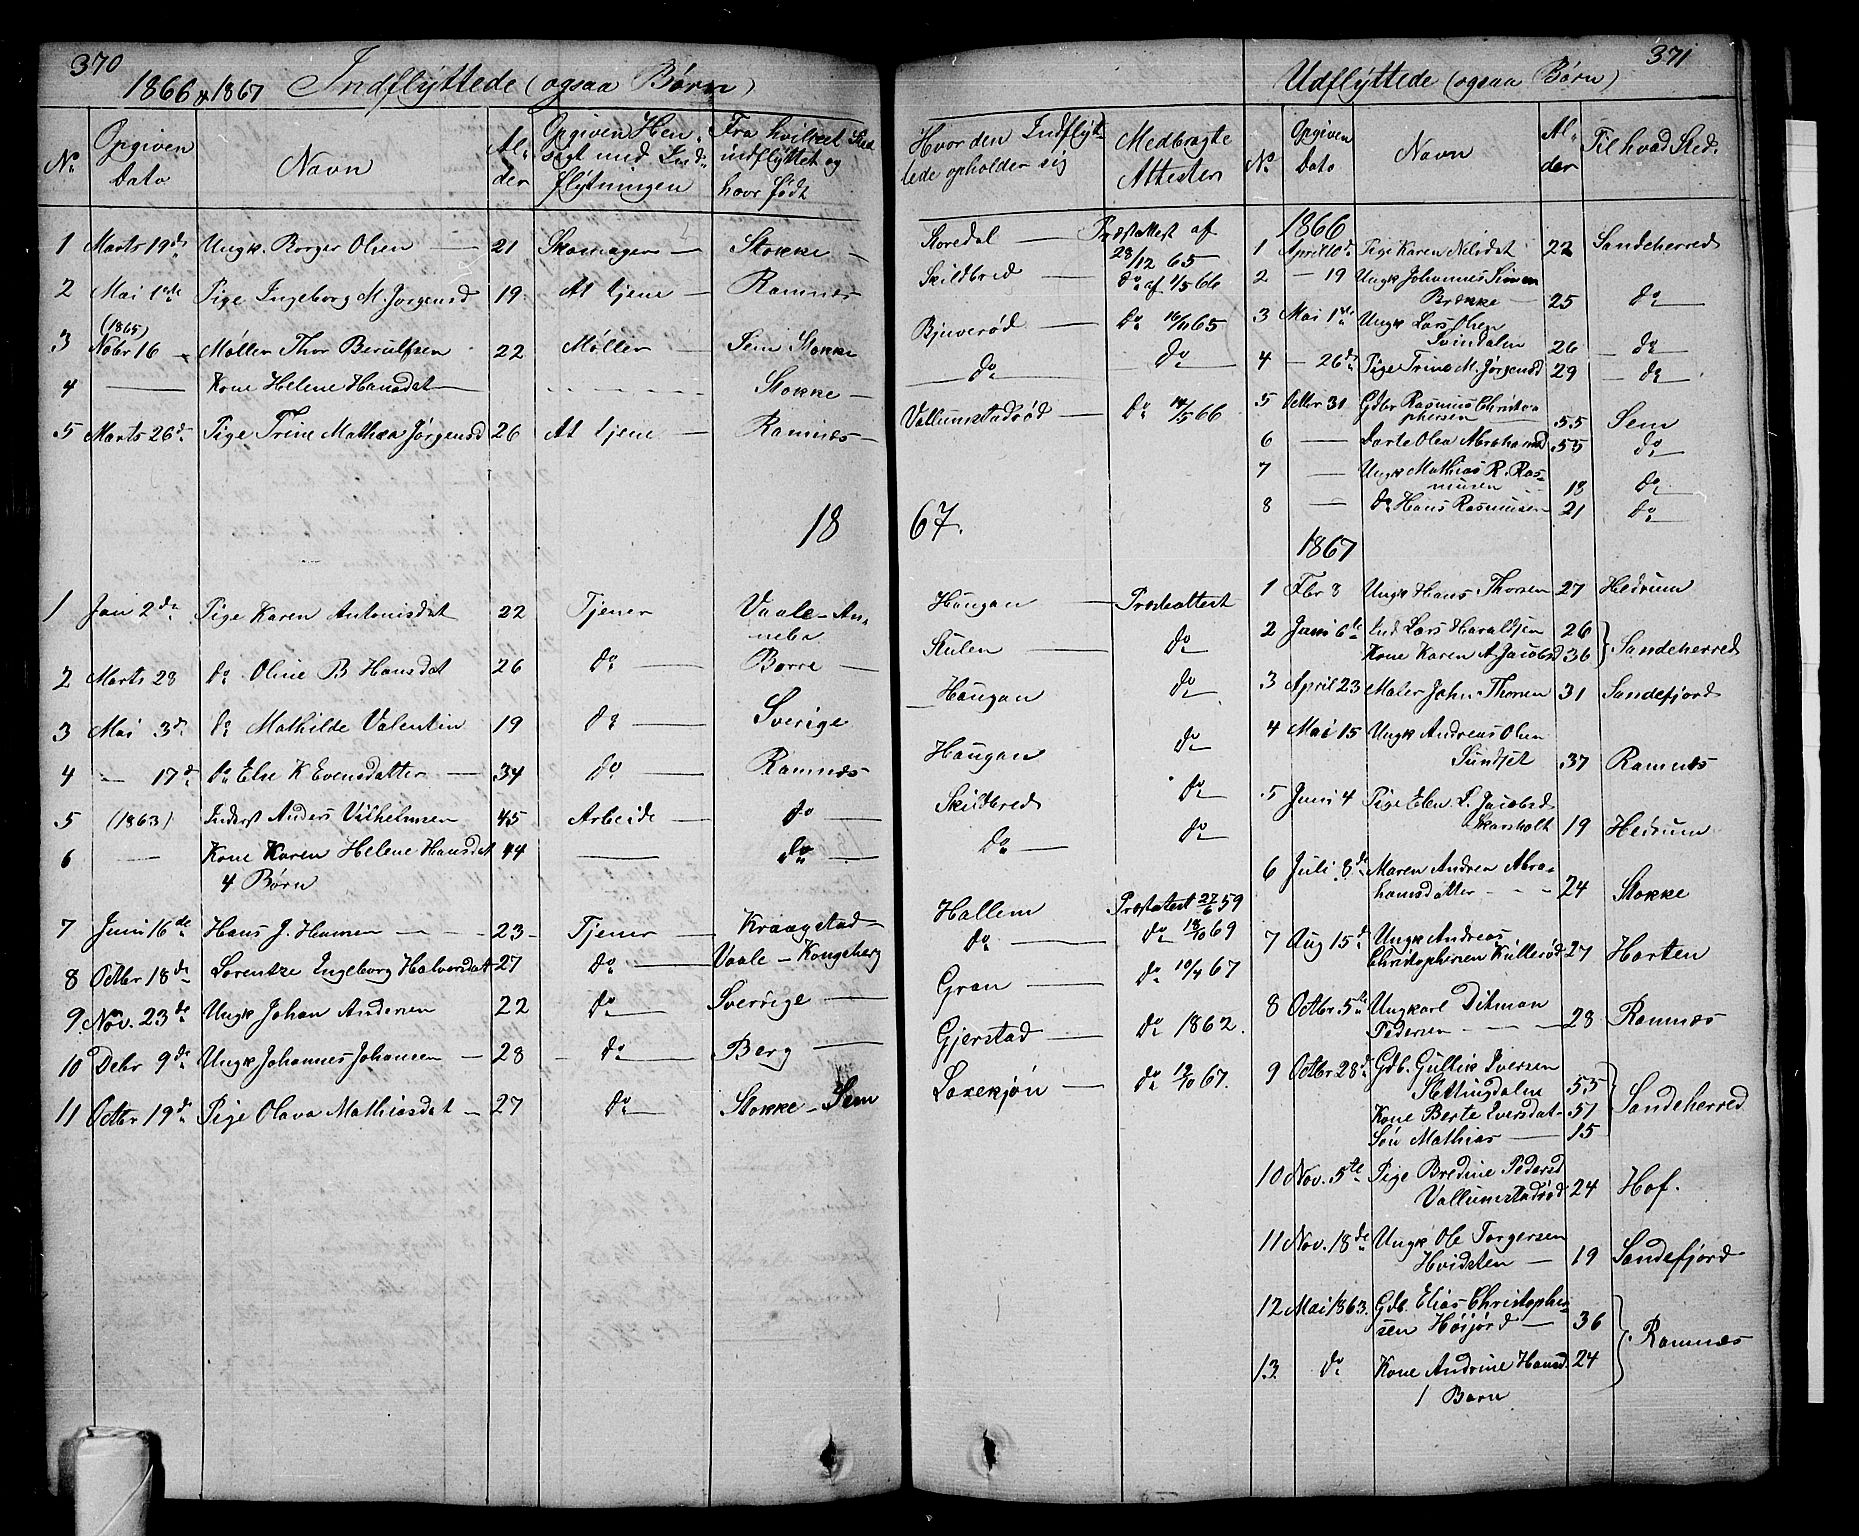 370
1866 & 1867 Indflyttede (ogsaa Børn)
No | Opgiven Dato | Navn | Al-der | Opgiven Hen-sigt med Ind-flytningen | Fra hvilket Sted indflyttet og hvor født | Hvor den Indflyt-tede opholder sig | Medbragte Attester
1 Marts 19de Ungk. Borger Olsen — 21 Skomager — Stokke — Storedal — Præstattest af 28/12 65
2 Mai 1ste Pige Ingeborg M. Jørgensd 19 At tjene — Ramnes Skildbred — do af 1/5 66
3 (1865) Nobr 16 Møller Thor Berulfsen 22 Møller — Sem Stokke Bjuverød — do 16/11 65
4 — Kone Helene Hansdat — Stokke — do — do
5 Marts 26de Pige Trine Mathea Jørgensd 26 At tjene — Ramnes — Vallumstadrød — do 14/5 66
1867.
1 Jan 2de Pige Karen Antonisdat 22 Tjener Vaale — An-nebu Haugan — Præsteattest
2 Marts 28 do Oline B Hansdat 26 do — Borre — Stulen — do
3 Mai 3de do Mathilde Valentin 19 do — Sverige Haugan — do
4 — 17de do Else K Evensdatter — 34 do — Ramnæs Haugan — do
5 (1863) Inderst Anders Vilhelmsen 45 Arbeide — do — Skildbred do
6 — Kone Karen Helene Hansdat 44 — do — do — do
4 Børn
7 Juni 16de Hans J. Hansen — 23 Tjener — Kraagstad — Hallem Præstatest 27/6 59
8 Octbr 18de Lorentze Ingeborg Halvorsdat 27 do — Vaale — Kongsberg do — do 18/10 69
9 Nov. 23de Ungk Johan Andersen 22 do — Sverrige — Gran — do 10/4 67
10 Debr 9de Ungk Johannes Johansen — 28 — do — Berg — Gjerstad — do 1862.
11 Octbr 19de Pige Olava Mathiasdat — 27 do — Stokke — Sem Laxekjøn — do 19/10 67.
371
Udflyttede (ogsaa Børn)
No | Opgiven Dato | Navn | Al-der | Til hvad Sted.
1866
1 April 10de Pige Karen Nilsdat 22 Sandeherred
2 — 19 Ungk Johannes Simen
Brække — 25 do
3 Mai 1ste Ungk Lars Olsen
Svindalen 26 — do
4 — 26de Pige Trine M. Jørgensd 29 — do
5 Octbr 31 Gdbr Rasmus Christo-
phersen 55 Sem
6 — Dorte Olea Abrahamsd 55 do
7 — Ungk Mathias R. Ras-
musen 18 do
8 — do Hans Rasmusen 21 do
1867
1 Fbr 3 Ungk Hans Thorsen 27 Hedrum
2 Juni 6te Ind Lars Haraldsen 26
Kone Karen A Jacobsd 36 } Sandeherred
3 April 23 Maler John Thorsen 31 Sandefjord
4 Mai 15 Ungk Andreas Olsen
Sundset 37 Ramnæs
5 Juni 4 Pige Elen L. Jacobsd
Skarsholt 19 Hedrum
6 Juli 8de Maren Andrea Abra-
hamsdatter — 24 Stokke
7 Aug 15de Ungk Andreas
Christophersen Kullerød 27 Horten
8 Octbr 5te Ungkarl Ditman
Pedersen — 28 Ramnæs
9 Octbr 28de Gdb. Gullik Iversen
Stettingdalen 55
Kone Berte Eversdat 51 } Sandeherred
Søn Mathias — 15
10 Nov. 5te Pige Bredine Pedersd
Vallumstadrød 24 Hof.
11 Nov. 18de Ungk Ole Torgersen
Hvidsten — 19 Sandefjord
12 Mai 1863. Gdb. Elias Christopher-
sen Høijord — 36
13 do Kone Andrine Hansd. 24 } Ramnæs
1 Barn